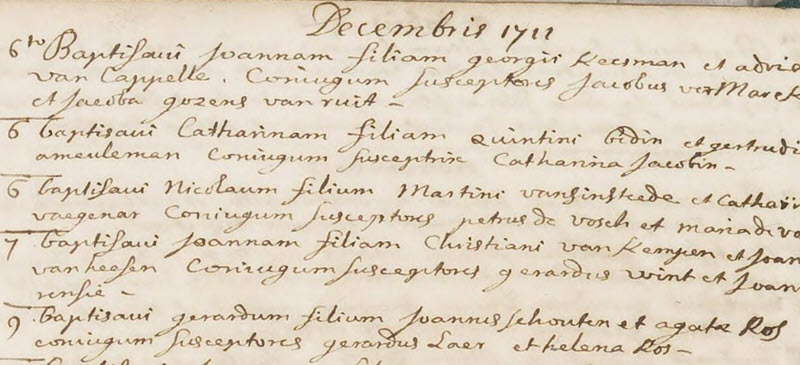 Decembris 1711
6to Baptisavi Joannam filiam georgii Keesman et adri
van Cappelle. Coniugum susceptores Jacobus ver Marck
et Jacoba gozens van ruit -
6 baptisavi Catharinam filiam Quintini bidin et gertrudi
ameuleman Coniugum susceptrix Catharina Jacobin -
6 baptisavi Nicolaum filium Martini vansinstede et Cathari
vaegenar Coniugum susceptores petrus de vosch et maria di vo
7 baptisavi Joannam filiam Christiani van Kempen et Joan
vanheesen Coniugum susceptores gerardus wint et Joan
rensie -
9 baptisavi gerardum filium Joannis schouten et agatæ Ros
coniugum susceptores gerardus Laer et helena Ros -